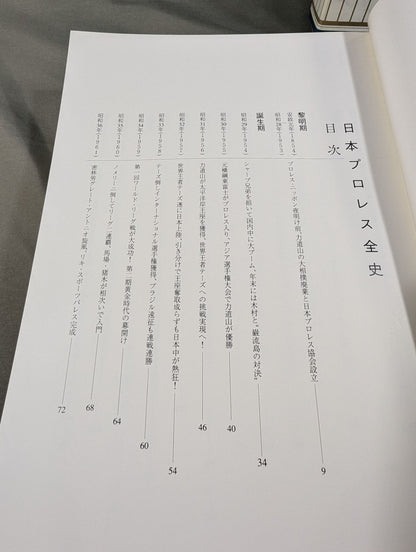 日本プロレス全史
目次
黎明期
安政元年(1854)
昭和28年(1953)
プロレス・ニッポン夜明け前、力道山の大相撲廃業と日本プロレス協会設立
9
誕生期
昭和29年(1954)
シャープ兄弟を招いて国内中に大ブーム、年末には木村と〝巌流島の対決〟
34
昭和30年(1955)
元横綱東富士がプロレス入り、アジア選手権大会で力道山が優勝
40
昭和31年(1956)
力道山が太平洋岸王座を獲得、世界王者テーズへの挑戦実現へ!
46
昭和32年(1957)
世界王者テーズ遂に日本上陸、引き分けで王座奪取成らずも日本中が熱狂!
54
昭和33年(1958)
テーズ倒しインターナショナル選手権獲得、ブラジル遠征も連戦連勝
60
昭和34年(1959)
第一回ワールド・リーグ戦が大成功!第二期黄金時代の幕開け
64
昭和35年(1960)
ノメリーニ倒してリーグ二連覇、馬場、猪木が相次いで入門
68
昭和36年(1961)
密林男グレート・アントニオ旋風、リキ・スポーツパレス完成
72